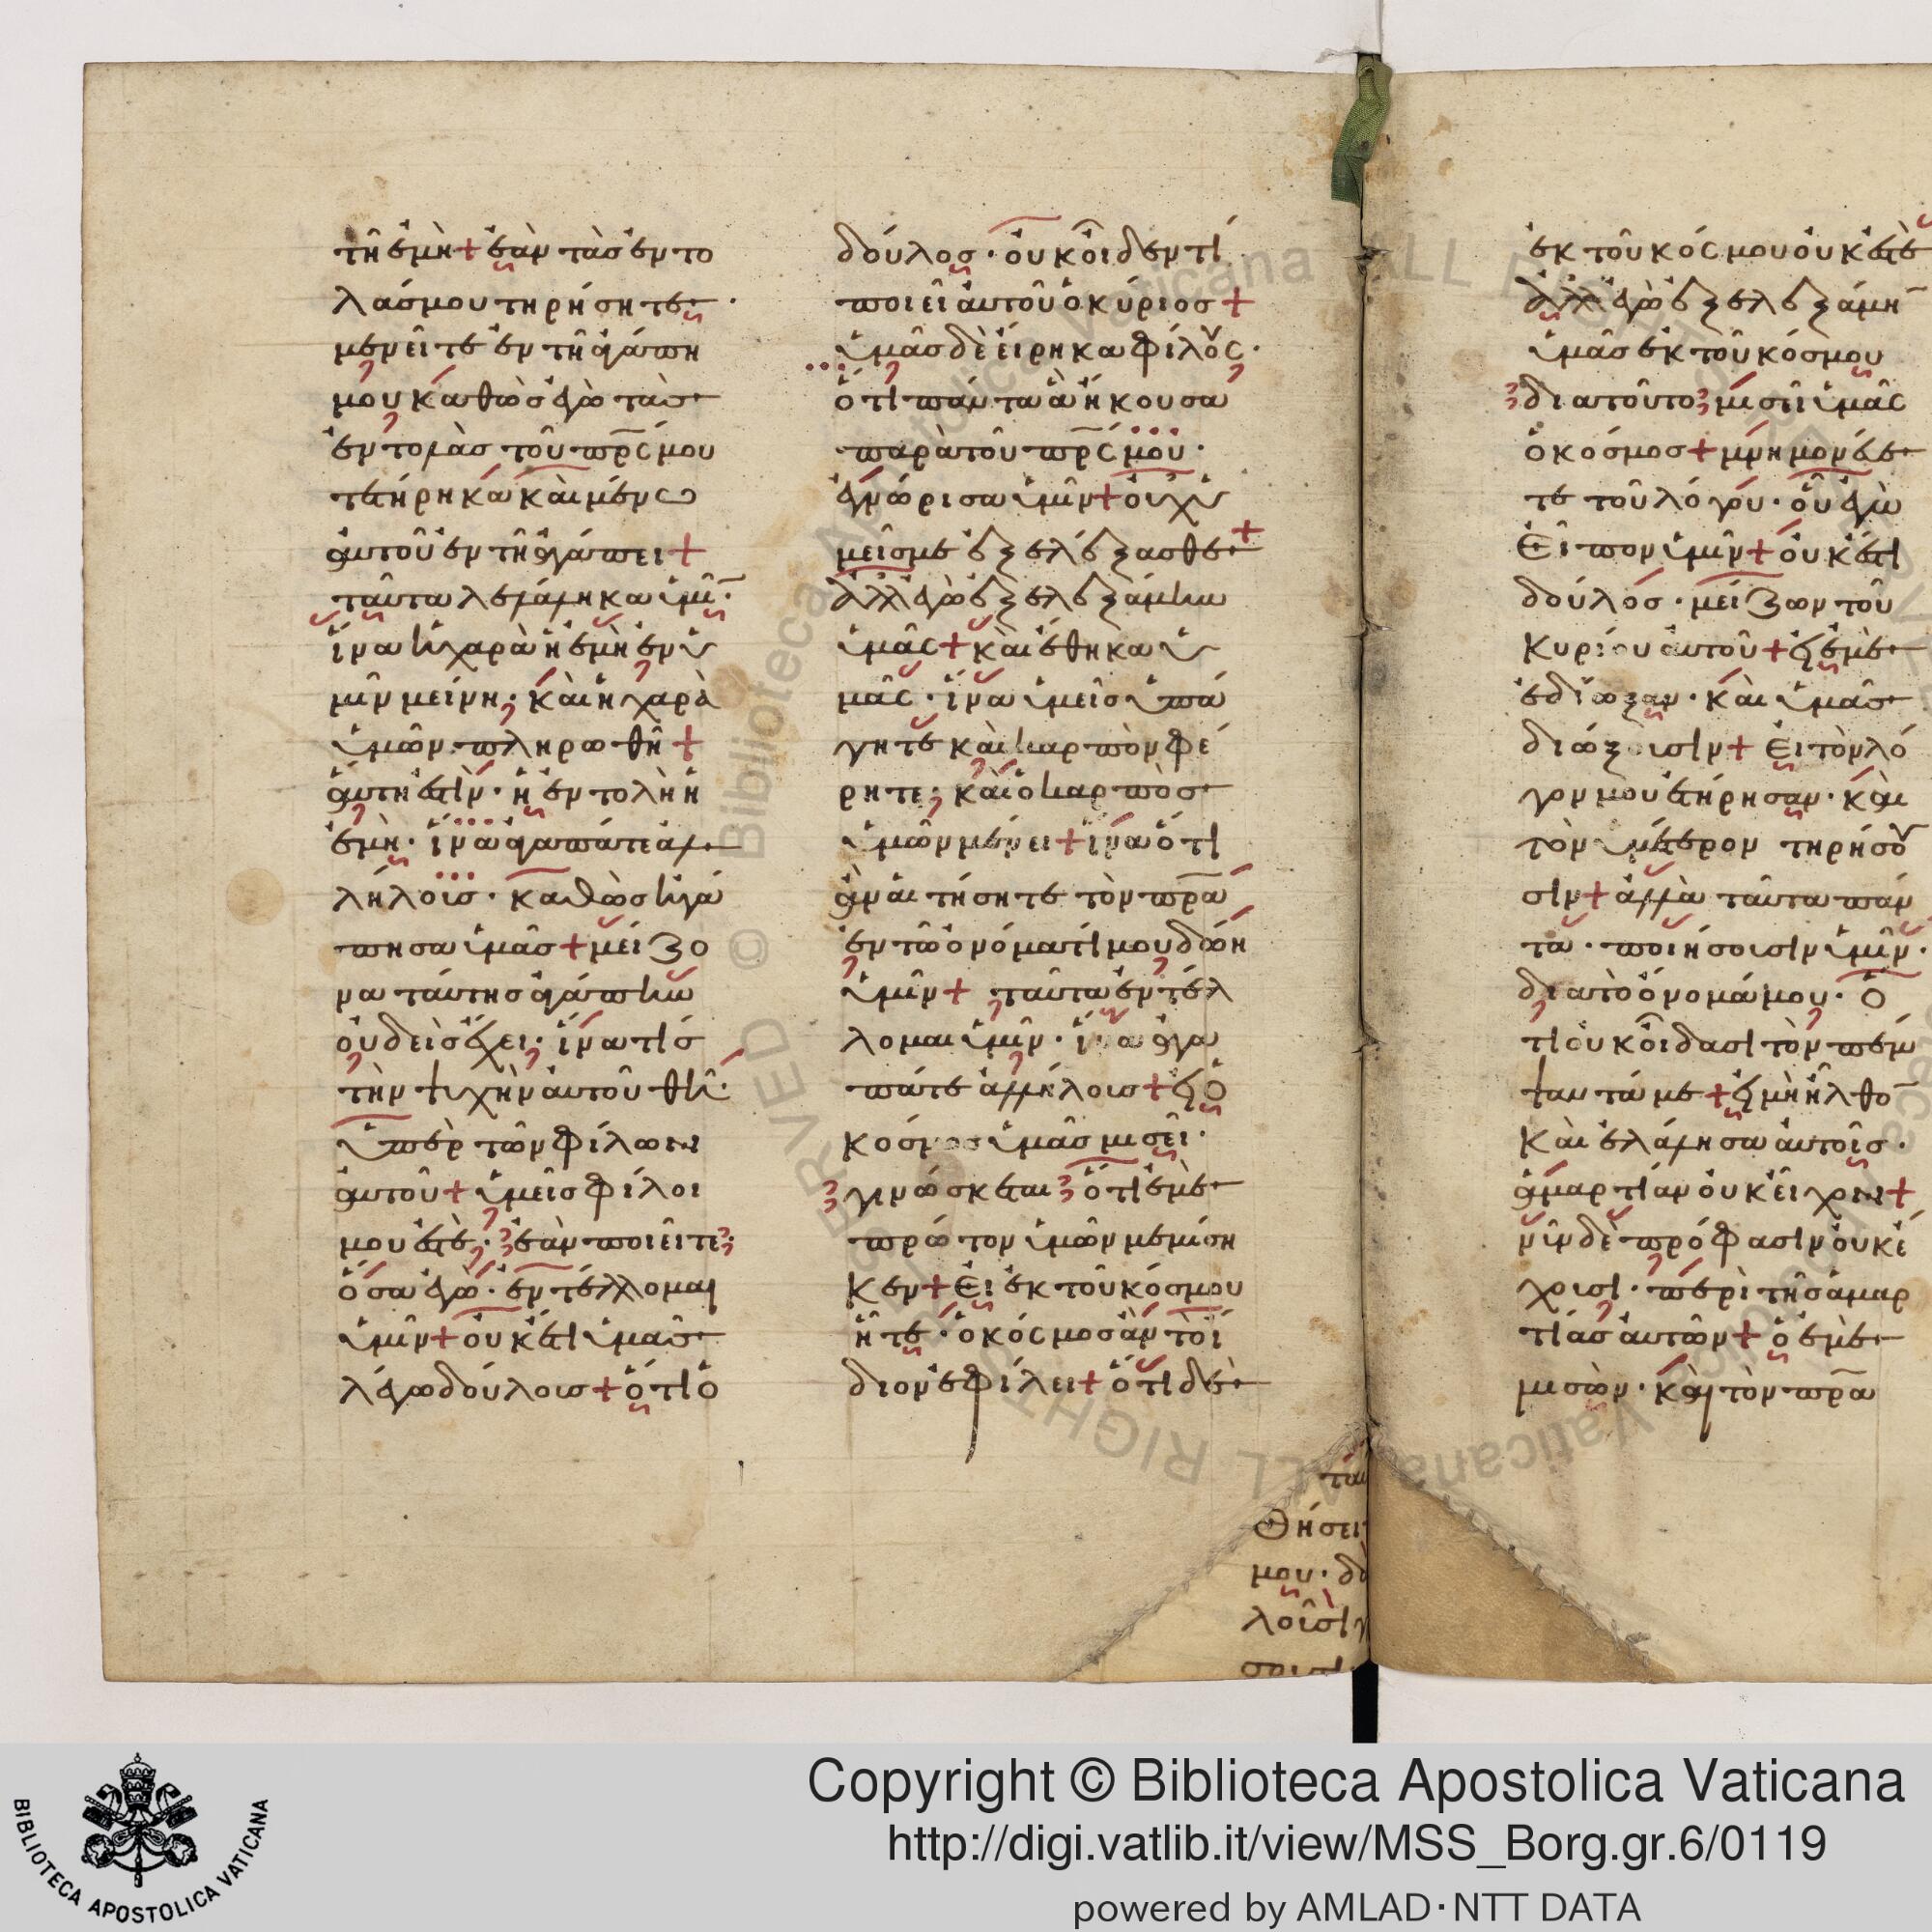 τῆ ἐμὴ + ἐὰν τὰσ ἐντο
λάσ μου τηρήσητε ·
μενεῖτε ἐν τῆ ἀγάπη
μου καθὼσ ἐγὼ τὰσ
ἐντολὰσ τοῦ πρ̅ς μου
τετήρηκα καὶ μένω
ἀυτοῦ ἐν τῆ ἀγάπει +
ταῦτα λελάληκα ὑμῖ̅ ·
ἵνα ἡ χαρὰ ἡ ἐμὴ ἐν ὑ
μῖν μείνη · καὶ ἡ χαρὰ
ὑμῶν πληρωθῆ +
ἁύτη ἐστὶν · ἡ ἐντολὴ ἡ
ἐμὴ · ἵνα ἀγαπάτε ἀλ
λήλοισ · καθὼσ ἠγά
πησα ὑμᾶσ + μείζο
να ταύτησ ἀγάπην
ὀυδεὶσ ἔχει · ἵνα τὶσ
τὴν ψυχὴν ἀυτοῦ θῆ ·
ὑπὲρ τῶν φίλων
ἀυτοῦ + ὑμεῖσ φίλοι
μου ἐστὲ · ἐὰν ποιεῖτε
ὅσα ἐγὼ · ἐντέλλομαι
ὑμῖν + ὀυκέτι ὑμᾶσ
λέγω δούλοισ + ὅτι ὁ
δούλοσ · ὀυκ ὀῖδεν τί
ποιεῖ ἀυτοῦ ὁ κύριοσ +
ὑμᾶσ δὲ ἐίρηκα φίλους ·
ὅτι πάντα ἃ ἤκουσα
παρὰ τοῦ πρ̅ς μου ·
ἐγνώρισα ὑμῖν + ὀυχ ὑ
μεῖσ με ἐξελέξασθε +
ἀλλ ἐγὼ ἐξελεξάμην
ὑμᾶς + καὶ ἔθηκα ὑ
μᾶς · ἵνα ὑμεῖσ ὑπά
γητε καὶ καρπὸν φέ
ρητε · καὶ ὁ καρπὸσ
ὑμῶν μένει + ἵνα ὅτι
ἂν ἀιτήσητε τὸν πρ̅α
ἐν τῶ ὀνόματί μου δώη
ὑμῖν + ταῦτα ἐντέλ
λομαι ὑμῖν · ἵνα ἀγα
πάτε ἀλλήλοισ + ἐι ὁ
κόσμος ὑμᾶσ μισεῖ ·
γινώσκεται ὅτι ἐμὲ
πρώτον ὑμῶν μεμίση
κεν + Ἐι ἐκ τοῦ κόσμου
ἦτε · ὁ κόςμοσ ἂν τὸ ἴ
διον ἐφίλει + ὅτι δὲ
ἐκ τοῦ κόςμου ὀυκ ἐστὲ
ἀλλ ἐγὼ ἐξελεξάμη̅
ὑμᾶσ ἐκ τοῦ κόσμου
διατοῦτο μισεῖ ὑμᾶς
ὁ κόσμοσ + μνημονέυε
τε τοῦ λόγου · ὁῦ ἐγὼ
Ἐῖπον ὑμῖν + ὀυκ ἔστι
δούλοσ · μείζων τοῦ
Κυρίου ἀυτοῦ + ἐι ἐμὲ
ἐδίωξαν · καὶ ὑμᾶσ
διώξουσιν + Ἐι τὸν λό
γον μου ἐτήρησαν · καὶ
τὸν ὑμέτερον τηρήσου
σιν + ἀλλὰ ταῦτα πάν
τα · ποιήσουσιν ὑμῖν ·
διατὸ ὄνομά μου · ὅ
τι ὀυκ ὀίδασι τὸν πέμ
ψαντά με + ἐι μὴ ἦλθο̅
Καὶ ἐλάλησα ἀυτοῖσ ·
ἁμαρτίαν ὀυκ ἐῖχον +
νῦν δὲ πρόφασιν ὀυκ ἔ
χουσι · περὶ τῆσ ἁμαρ
τίασ ἀυτῶν + ὁ ἐμὲ
μισῶν · καὶ τὸν πρ̅α
Θήσει
μου · δὸ
Copyright © Biblioteca Apostolica Vaticana
http://digi.vatlib.it/view/MSS_Borg.gr.6/0119
powered by AMLAD·NTT DATA
BIBLIOTECA APOSTOLICA VATICANA